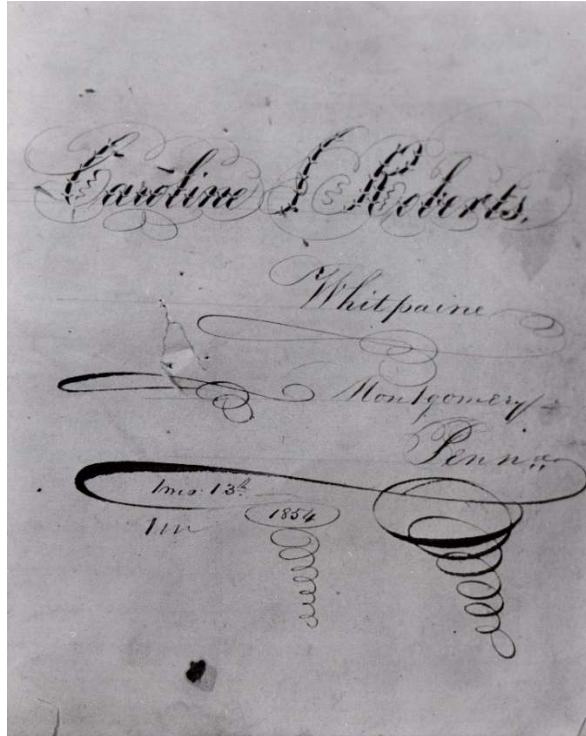 Caroline S Roberts.
Whitpaine
Montgomery
Penna
1mo. 13th
1854